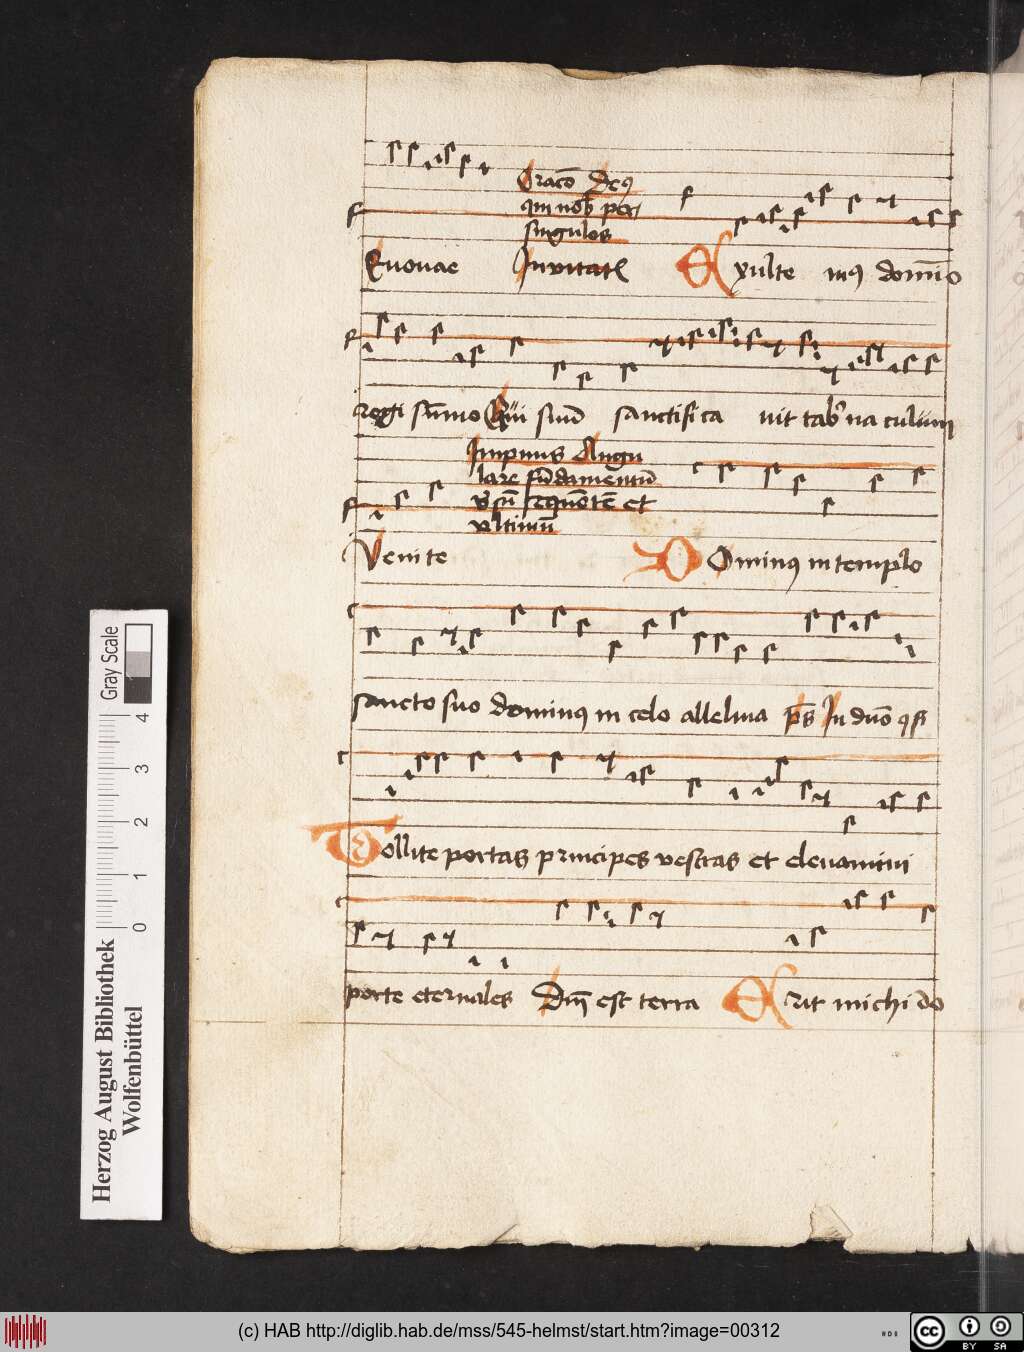 Oracō Deꝯ
qui nob̄ per
singulos
Euouae Invitatꝭ Exulteꝯ dom̄io
regi sūmo Qui suū sanctifica uit tab̓na culum
Impnus Angu
lare fūdamentū
v̓sū sequētē et
vltimū
Venite Dominꝯ in templo
sancto suo dominꝯ in celo alleluia p̄s In dnō
Tollite portas principes vestras et eleuamini
porte eternales Dn̄i est terra Erit michi do
Gray Scale
4
3
2
1
0
Herzog August Bibliothek
Wolfenbüttel
(c) HAB http://diglib.hab.de/mss/545-helmst/start.htm?image=00312
cc BY SA